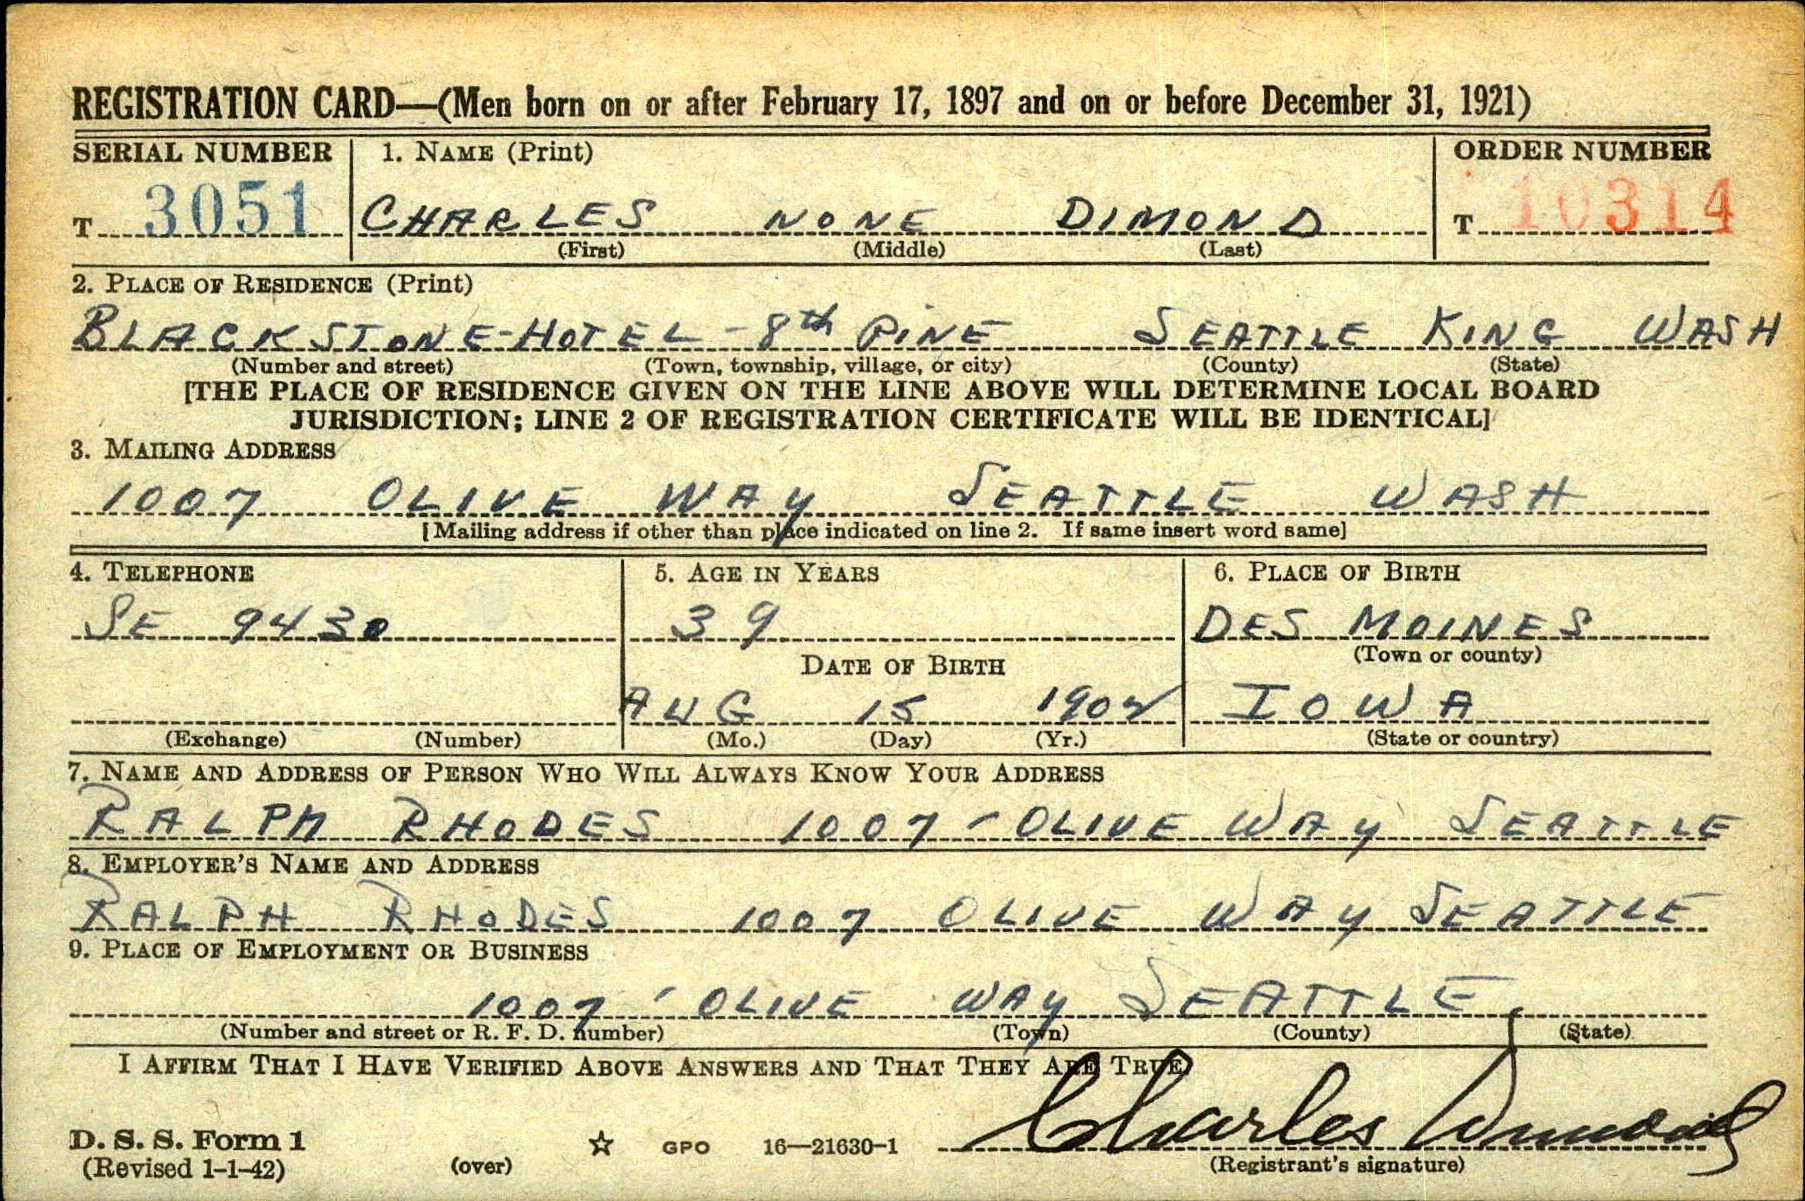 REGISTRATION CARD—(Men born on or after February 17, 1897 and on or before December 31, 1921)
SERIAL NUMBER 1. NAME (Print) ORDER NUMBER
T 3051 CHARLES NONE DIMOND T 10314
(First) (Middle) (Last)
2. PLACE OF RESIDENCE (Print)
BLACKSTONE-HOTEL-8th PINE SEATTLE KING WASH
(Number and street) (Town, township, village, or city) (County) (State)
[THE PLACE OF RESIDENCE GIVEN ON THE LINE ABOVE WILL DETERMINE LOCAL BOARD
JURISDICTION; LINE 2 OF REGISTRATION CERTIFICATE WILL BE IDENTICAL]
3. MAILING ADDRESS
1007 OLIVE WAY SEATTLE WASH
[Mailing address if other than place indicated on line 2. If same insert word same]
4. TELEPHONE 5. AGE IN YEARS 6. PLACE OF BIRTH
SE 9430 39 DES MOINES
DATE OF BIRTH (Town or county)
AUG 15 1902 IOWA
(Exchange) (Number) (Mo.) (Day) (Yr.) (State or country)
7. NAME AND ADDRESS OF PERSON WHO WILL ALWAYS KNOW YOUR ADDRESS
RALPH RHODES 1007-OLIVE WAY SEATTLE
8. EMPLOYER'S NAME AND ADDRESS
RALPH RHODES 1007 OLIVE WAY SEATTLE
9. PLACE OF EMPLOYMENT OR BUSINESS
1007 ' OLIVE WAY SEATTLE
(Number and street or R. F. D. number) (Town) (County) (State)
I AFFIRM THAT I HAVE VERIFIED ABOVE ANSWERS AND THAT THEY ARE TRUE
Charles Dimond
D. S. S. Form 1 GPO 16—21630-1
(Revised 1-1-42) (over) (Registrant's signature)